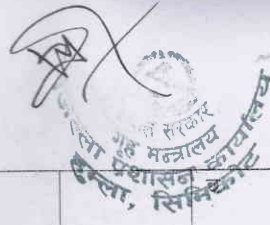 सरकार
गृह मन्त्रालय
प्रशासन कार्यालय
हुम्ला, सिमिकोट